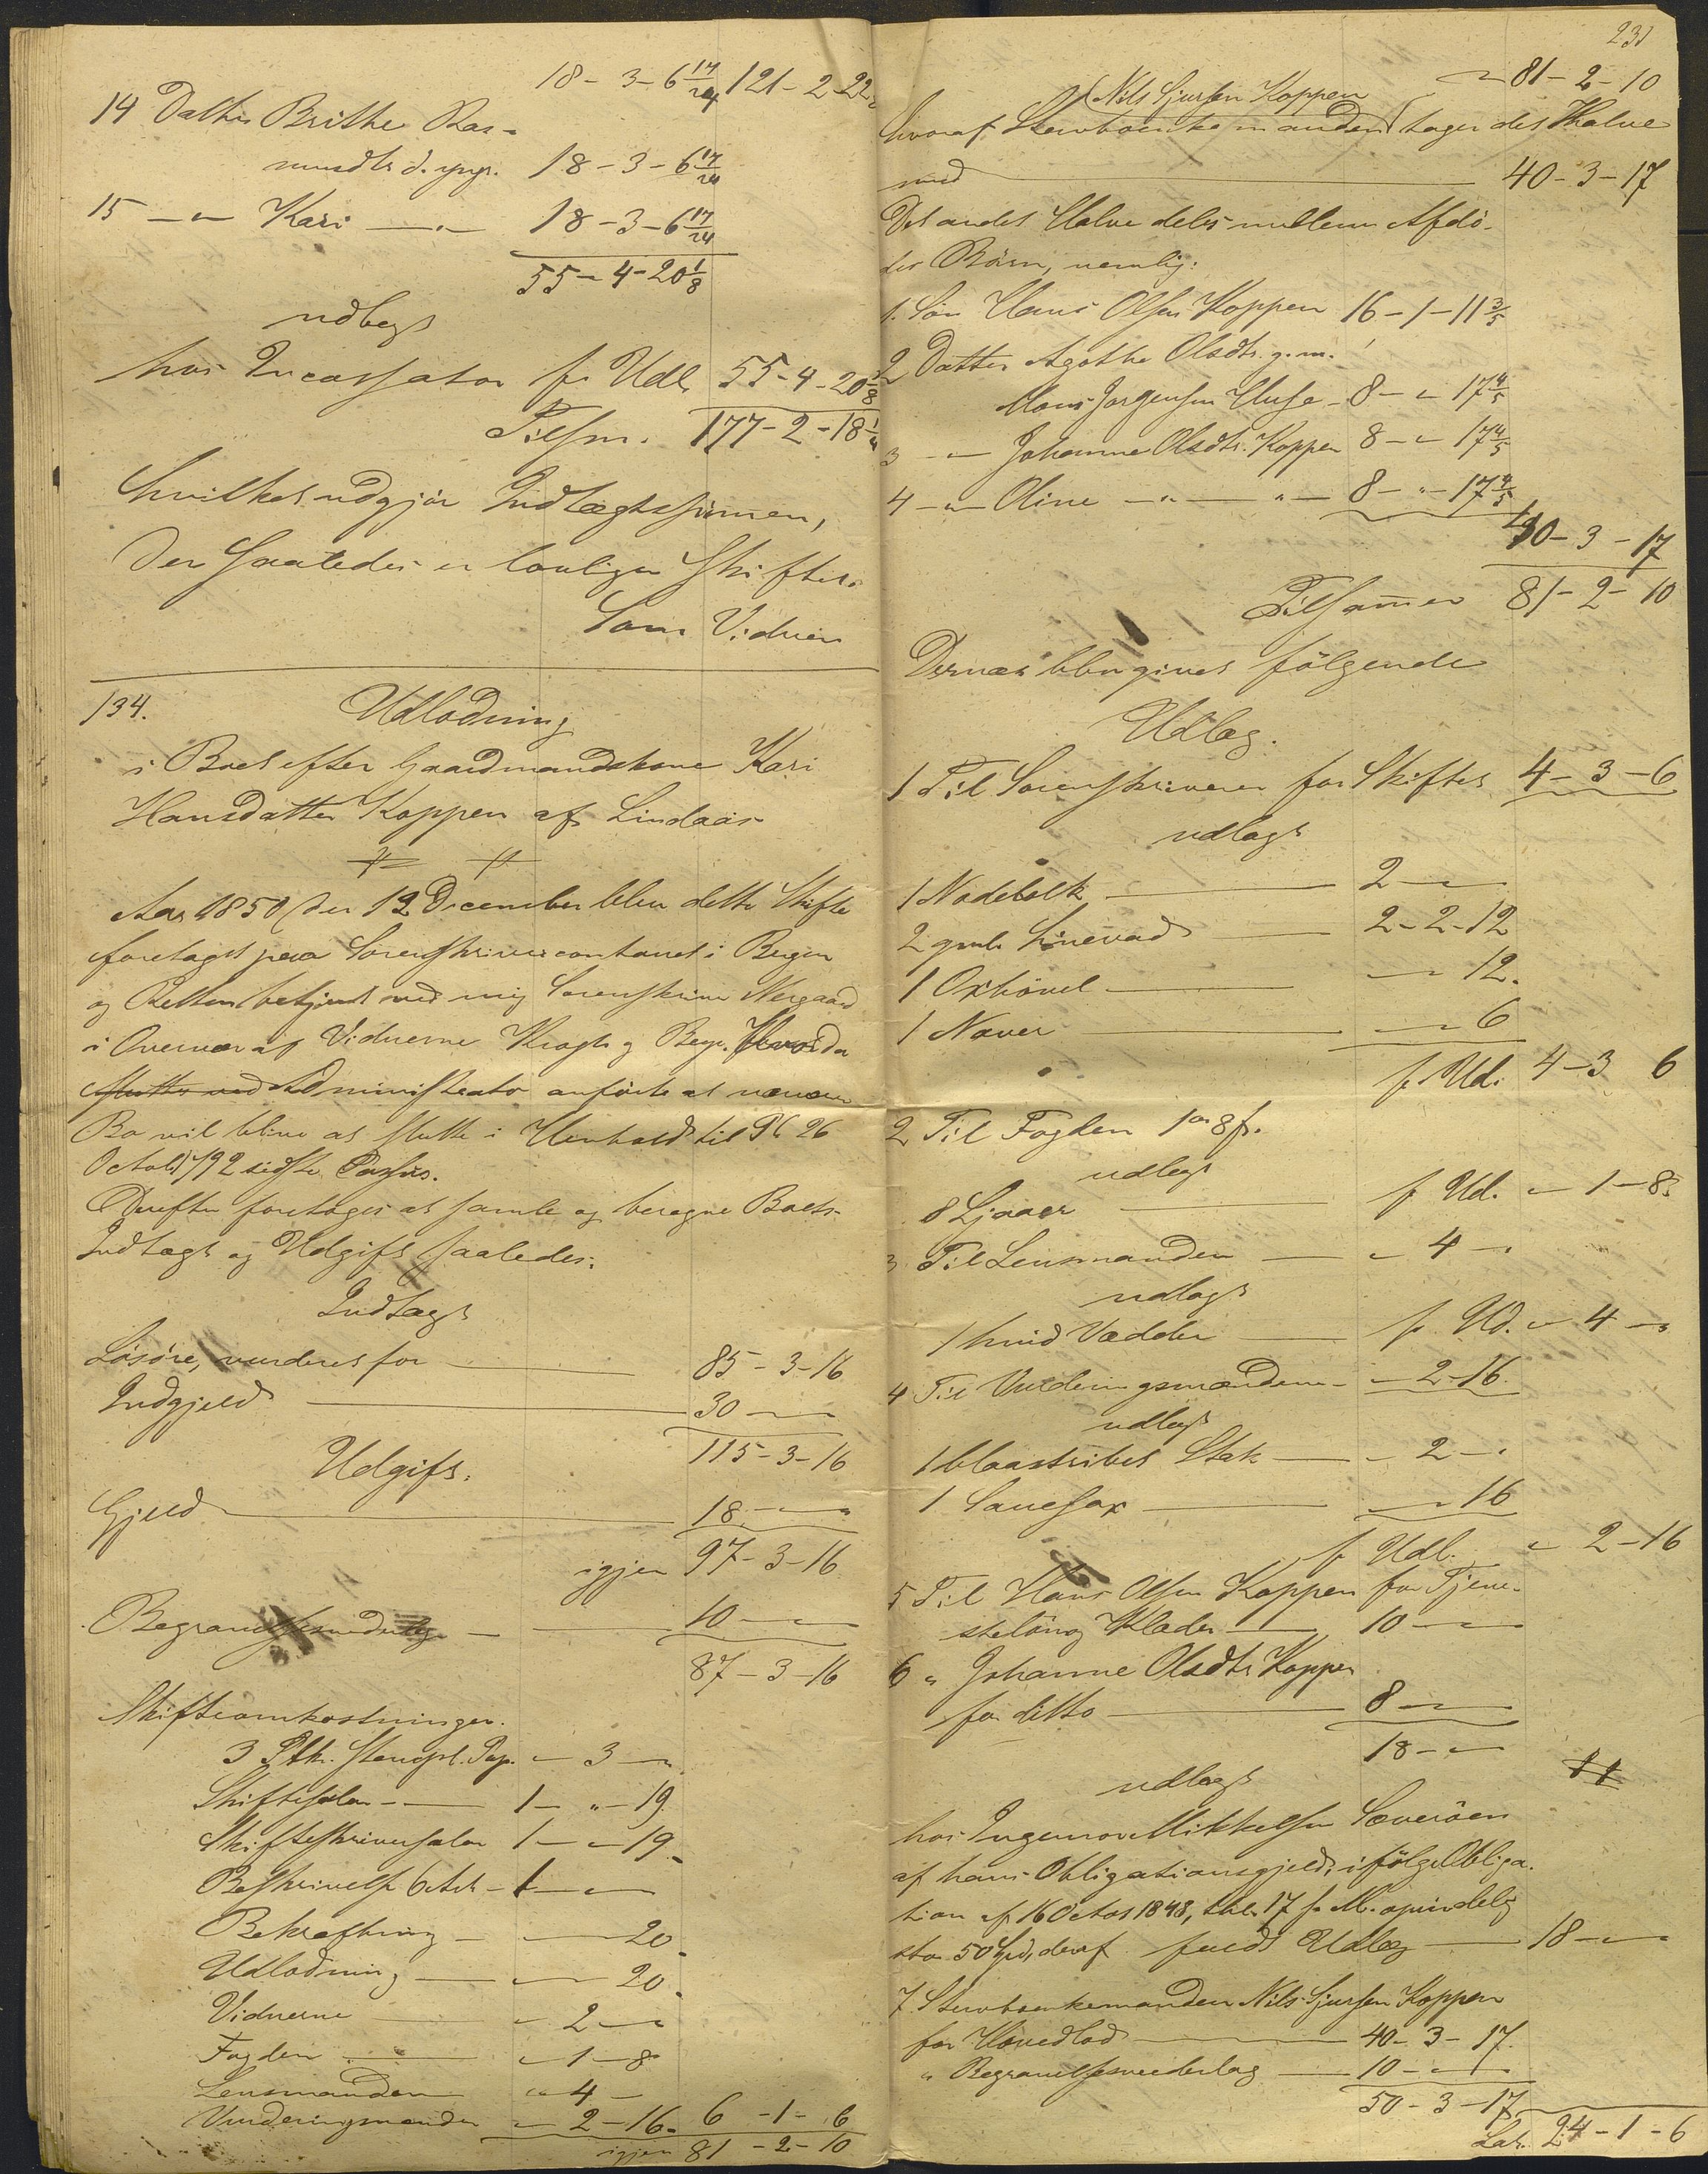 18 - 3 - 6 17/24 121 - 2 - 22
14 Datter Brithe Ras-
musdtr d. yngr. 18 - 3 - 6 17/24
15 - " - Kari - " - 18 - 3 - 6 17/24
55 - 4 - 20 1/8
udlagt
hos Incassator fr Udl. 55 - 4 - 20 1/8
Tilsm. 177 - 2 - 18 1/4
hvilket udgjør Indtægtssummen,
Der saaledes er lovligen skiftet.
Som Vidner
134. Udlodning
i Boet efter Gaardmandskone Kari
Hansdatter Koppen af Lindaas
Aar 1850 den 12 December blev dette Skifte
foretaget paa Sorenskrivercontoret i Bergen
og Retten betjent ved mig Sorenskriver Nergaard
i Overvær af Vidnerne Krogh og Berge. Hvorda
slutte ved Administrator anførte at nærvær
Bo vil blive at slutte i Henhold til Pl 26
Octob 1792 sidste Passus.
Derefter foretoges at samle og beregne Boets
Indtægt og Udgift saaledes:
Indtægt
Løsøre, vurderet for 85 - 3 - 16
Indgjeld 30 - " - "
115 - 3 - 16
Udgift.
Gjeld 18 - " - "
igjen 97 - 3 - 16
Begravelses 10 - " -
87 - 3 - 16
Skifteomkostninger.
3 Stempl. Pap. " - 3 - "
Skiftesalar - 1 - " - 19
Skifteskriversalar 1 - " - 19
Beskrivelse 6 Ark - 1 - " -
Bekræftning - " - 20
Udlodning - " - 20
Vidnerne " - 2 - "
Fogden " - 1 - 8
Lensmanden " - 4 -
Vurderingsmænden " - 2 - 16 6 - 1 - 6
igjen 81 - 2 - 10
231
" 81 - 2 - 10
(Nils Sjursen Koppen)
hvoraf Stervboenkemanden tager det Halve
med 40 - 3 - 17
Det andet Halve deles mellem Afdø-
des Børn, nemlig:
1. Søn Hans Olsen Koppen 16 - 1 - 11 3/5
2 Datter Agathe Olsdtr. g. m.
Mons Jørgensen Huse - 8 - " 17 4/5
3 - " Johanne Olsdtr. Koppen 8 - " 17 4/5
4 - " - Oline - " - " - 8 - " - 17 4/5
40 - 3 - 17
Tilsamen 81 - 2 - 10
Dernæst blev givet følgende
Udlæg.
1 Til Sorenskriveren for Skiftet 4 - 3 - 6
udlagt
1 Nodebolk 2 - "
2 gmle Sinevad 2 - 2 - 12
1 Oxhøvel " - 12.
1 Naver " - 6
fr. Ud. 4 - 3 6
2 Til Fogden 1 or 8 s.
udlagt
8 Ljaaer fr Ud. " - 1 - 8
3 Til Lensmanden " 4 - "
udlagt
1 hvid Vædder fr Ud. " 4 - "
4 Til Vurderingsmændene - " - 2 - 16
udlagt
1 blaastribet Stak - 2 - "
1 Sauesax " 16
fr Udl. " 2 - 16
5 Til Hans Olsen Koppen for Tjene-
steløn og Klæder 10 - "
6 " Johanne Olsdtr Koppen
for ditto 8 - "
18 - "
udlagt
hos Ingemor Mikkelsen Sæverøen
af hans Obligationsgjeld, i følge Obliga-
tion af 16 Octos 1848, thl. 17 s. M. oprindelig
stor 50 Spd, deraf fuldt Udlæg 18 - " -
7 Stervboenkemanden Nils Sjursen Koppen
for Hovedlod 40 - 3 - 17
" Begravelsesvederlag 10 - " -
50 - 3 - 17
Lat. 24 - 1 - 6